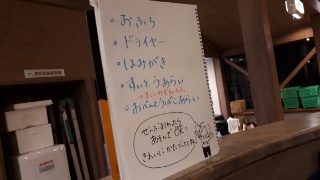 ・おふろ
・ドライヤー
・はみがき
・すいとうあらい
・おべんとうばこあらい
ぜんぶおわったら
あそんでOK!!
きれいにかたづけてね